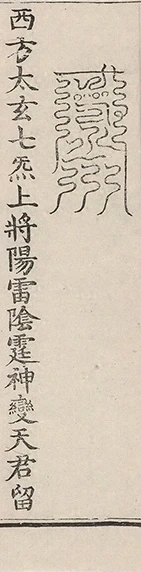 西方太玄七炁上將陽雷陰霆神變天君留